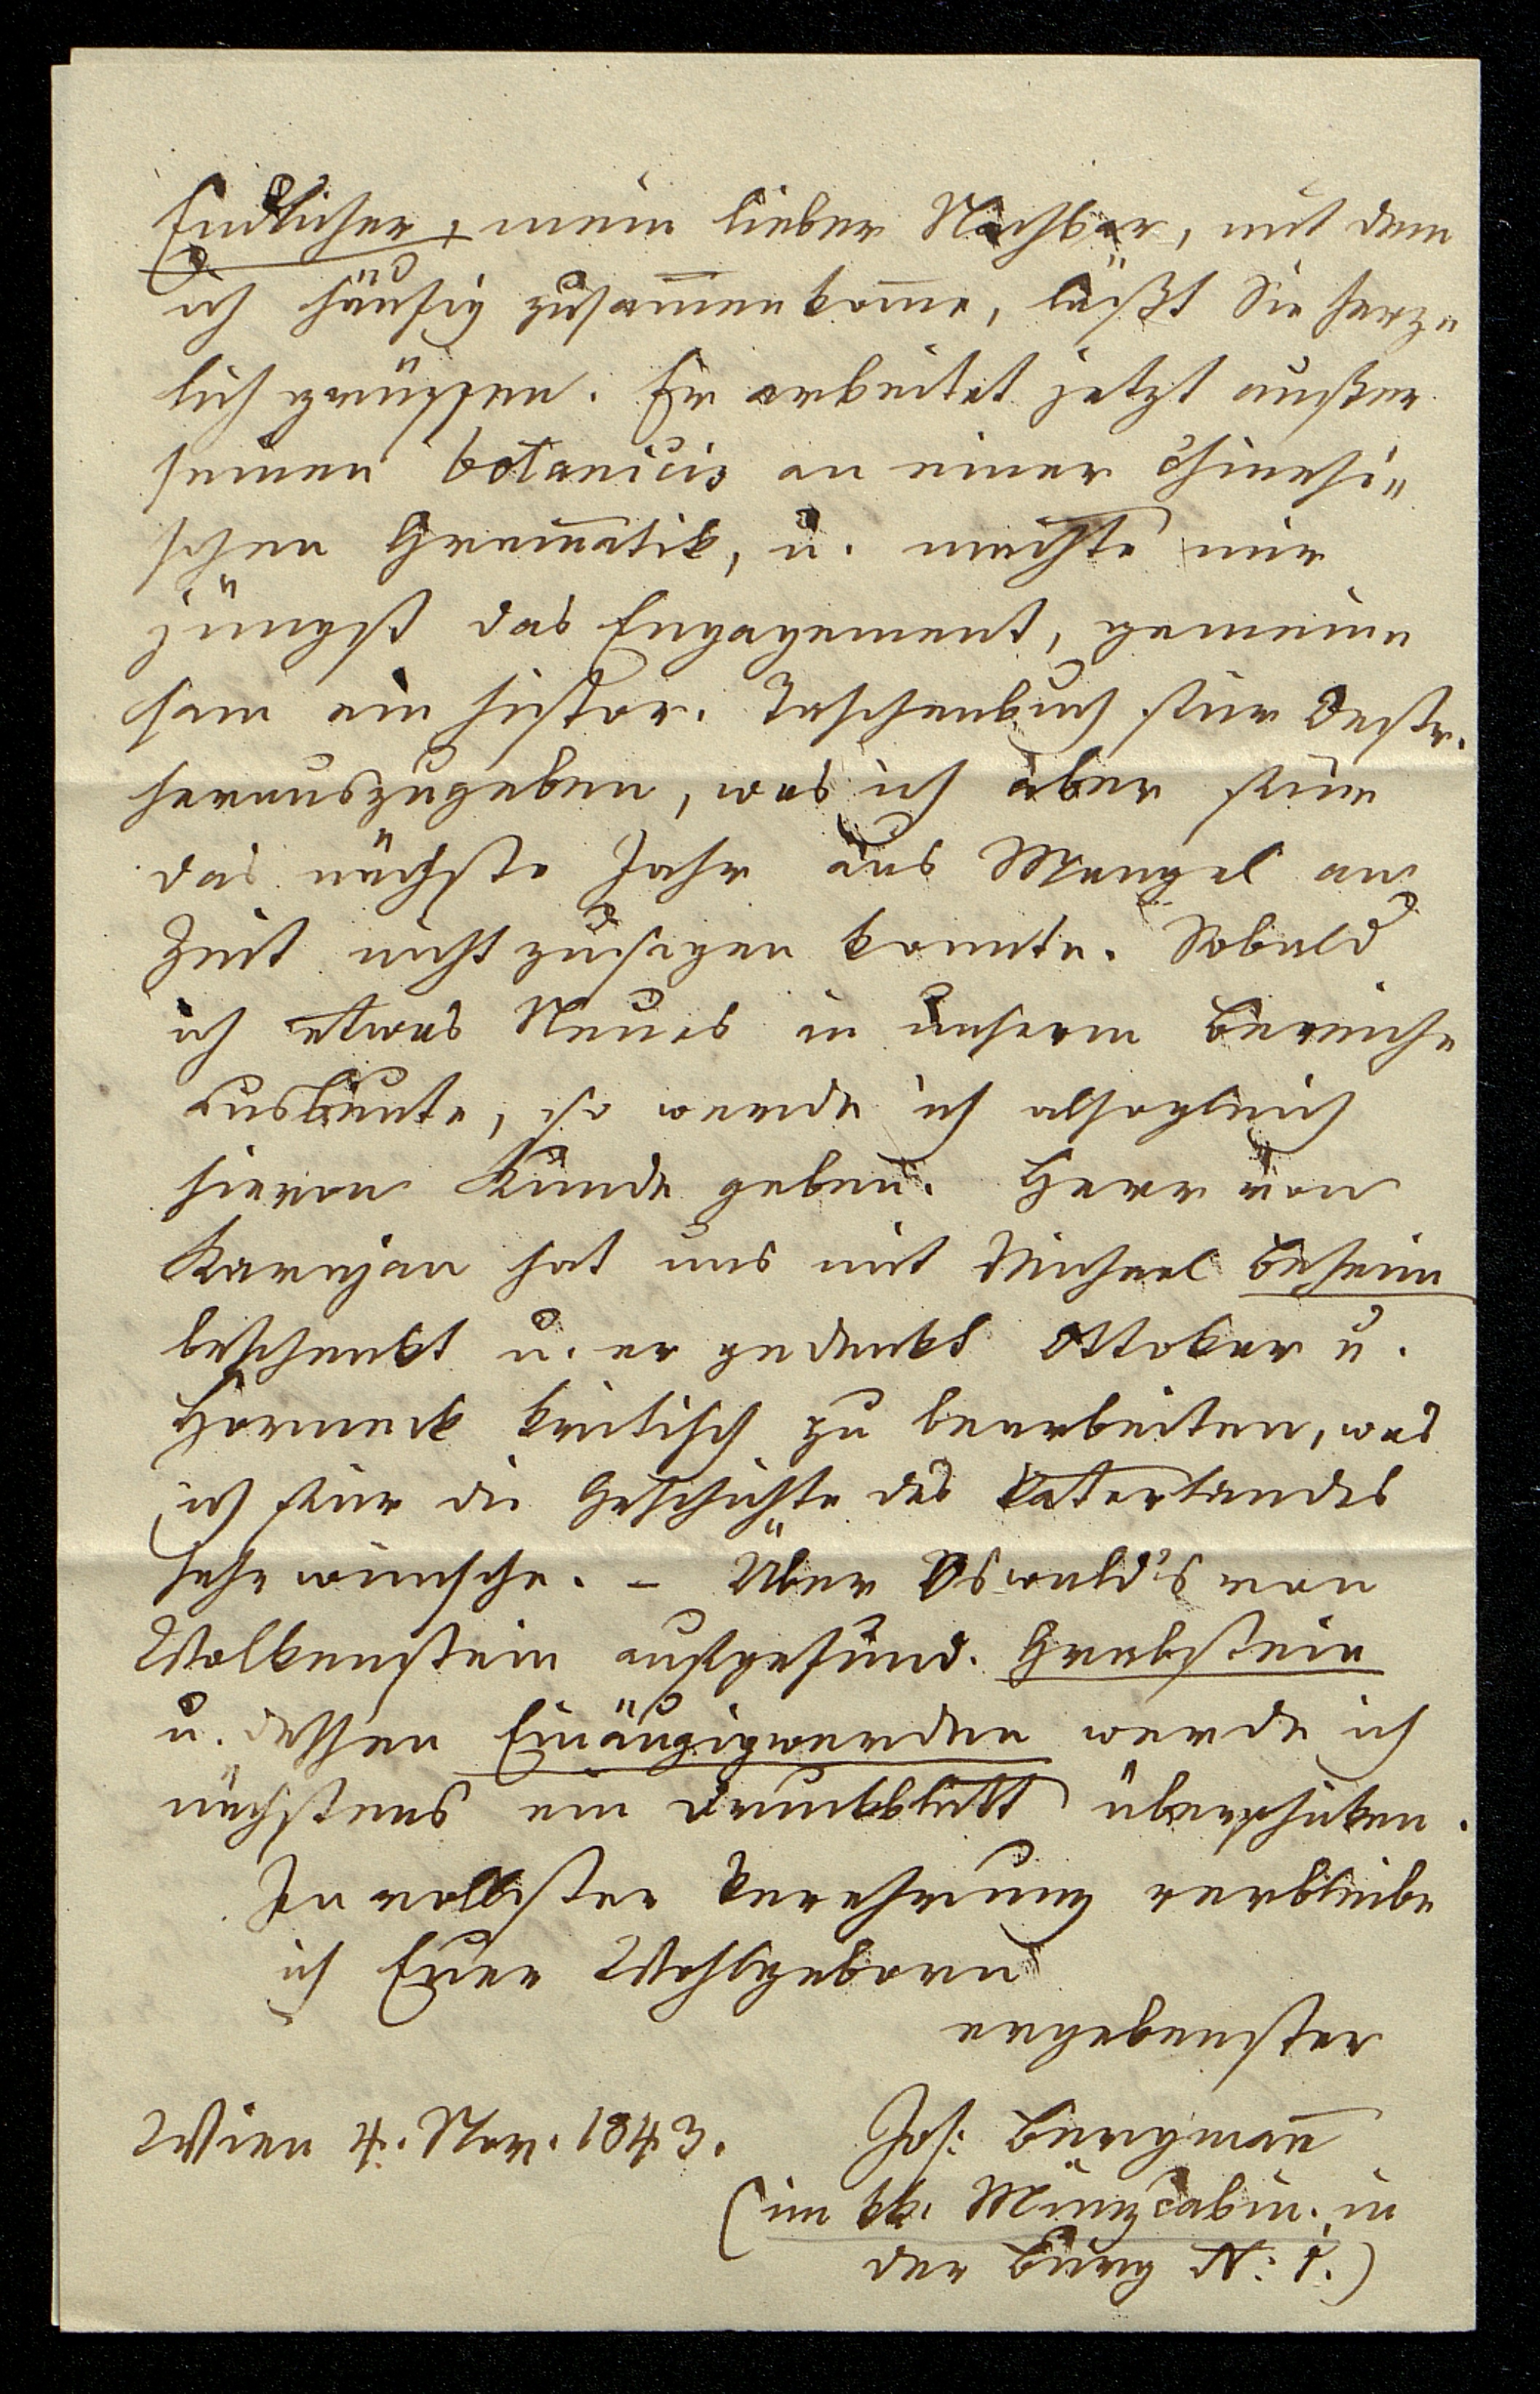 Endlicher, mein lieber Nachbar, mit dem
ich häufig zusam̅enkom̅e, läßt Sie herz-
lich grüssen. Er arbeitet jetzt außer
seinen botanicis an einer chinesi-
schen Gram̅atik, u. machte mir
jüngst das Engagement, gemein-
sam ein histor. Taschenbuch für Oestr.
herauszugeben, was ich aber für
das nächste Jahr aus Mangel an
Zeit nicht zusagen konnte. Sobald
ich etwas Neues in unserm Bereiche
ausbeute, so werde ich alsogleich
hievon Kunde geben. Herr von
Karajan hat uns mit Michael Beheim
beschenkt u. er gedenkt Ottokar v.
Horneck kritisch zu bearbeiten, was
ich für die Geschichte des Vaterlandes
sehr wünsche. – Über Oswald's von
Wolkenstein aufgefund. Grabstein
u. dessen Einäugigwerden werde ich
nächstens ein Druckblatt überschicken.
In vollster Verehrung verbleibe
ich Euer Wohlgeborn
ergebenster
Wien 4. Nov. 1843.
Jos: Bergman̅
(im kk. Münzcabin. in
der Burg N: 1.)